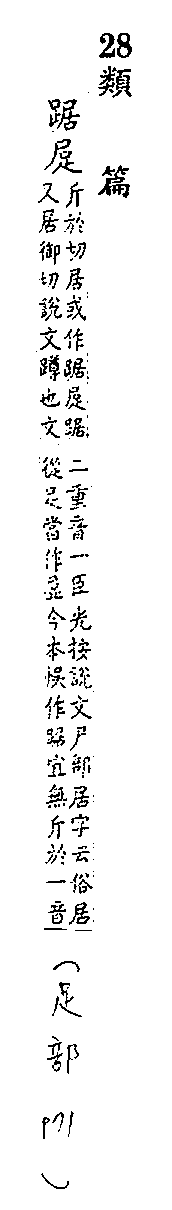 28 類篇
踞
斤於切居或作踞踞
又居御切說文蹲也文
二重音一臣光按說文尸部居字云俗居
從足當作今本悞作踞宜無斤於一音
（足部）